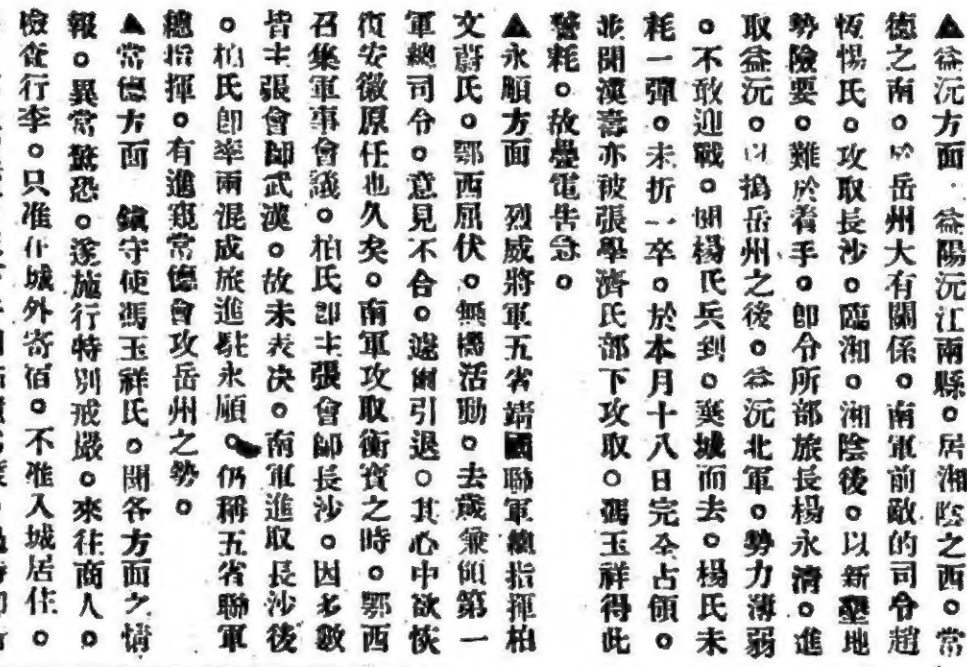 ▲益沅方面 益陽沅江兩縣。居湘陰之西。常
德之南。於岳州大有關係。南軍前敵的司令趙
恆惕氏。攻取長沙。臨湘。湘陰後。以新墾地
勢險要。難於着手。卽令所部旅長楊永清。進
取益沅。以搗岳州之後。益沅北軍。勢力薄弱
。不敢迎戰。聞楊氏兵到。棄城而去。楊氏未
耗一彈。未折一卒。於本月十八日完全占領。
並聞漢壽亦被張學濟氏部下攻取。馮玉祥得此
警耗。故疊電告急。
▲永順方面 烈威將軍五省靖國聯軍總指揮柏
文蔚氏。鄂西屈伏。無機活動。去歲兼領第一
軍總司令。意見不合。遽爾引退。其心中欲恢
復安徽原任也久矣。南軍攻取衡寶之時。鄂西
召集軍事會議。柏氏卽主張會師長沙。因多數
皆主張會師武漢。故未表決。南軍進取長沙後
。柏氏卽率兩混成旅進駐永順。仍稱五省聯軍
總指揮。有進窺常德會攻岳州之勢。
▲常德方面 鎮守使馮玉祥氏。聞各方面之情
報。異常驚恐。遂施行特別戒嚴。來往商人。
檢查行李。只准在城外寄宿。不准入城居住。